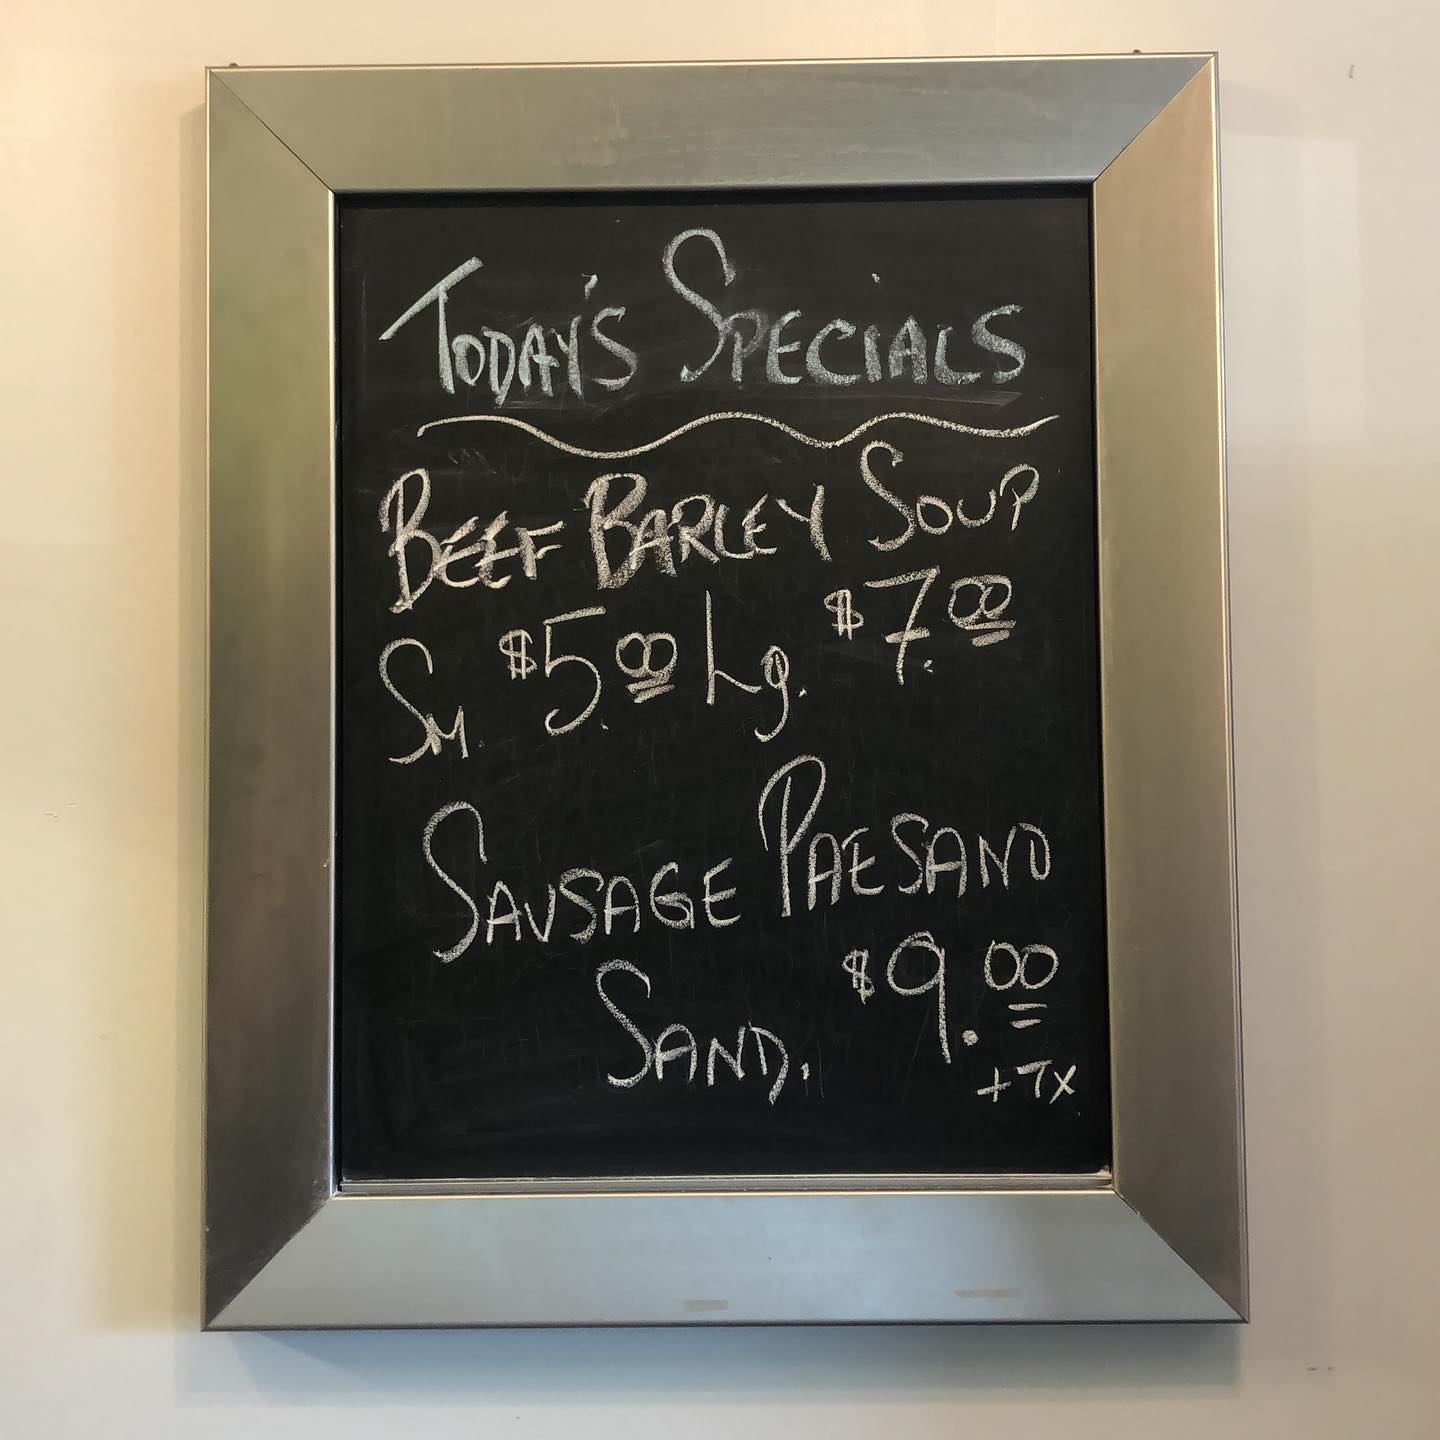 TODAY'S SPECIALS
BEEF BARLEY SOUP
SM. $5.00 Lg. $7.00
SAUSAGE PAESANO
SAND. $9.00
+TX